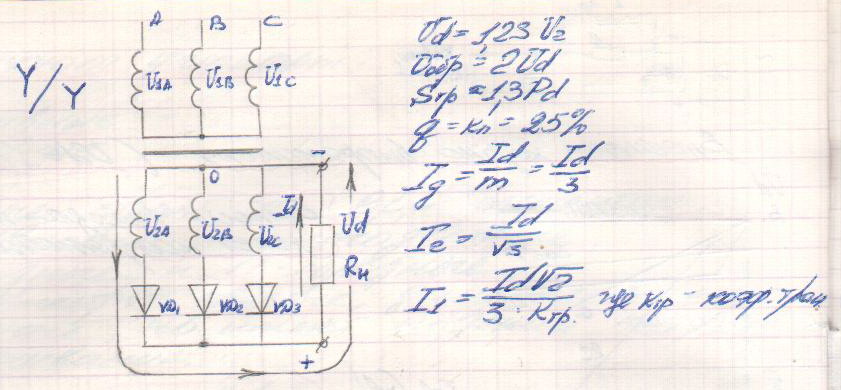 A B C
Y/Y
U1A U1B U1C
-
0
U2A U2B U2C Id Ud
Rн
VD1 VD2 VD3
+
Ud = 1,23 U2
Uобр = 2Ud
Sтр = 1,3Pd
q = кп = 25%
Ig = Id/m = Id/3
I2 = Id/√3
I1 = Id√2/3·Kтр. где Kтр - коэф. тран.